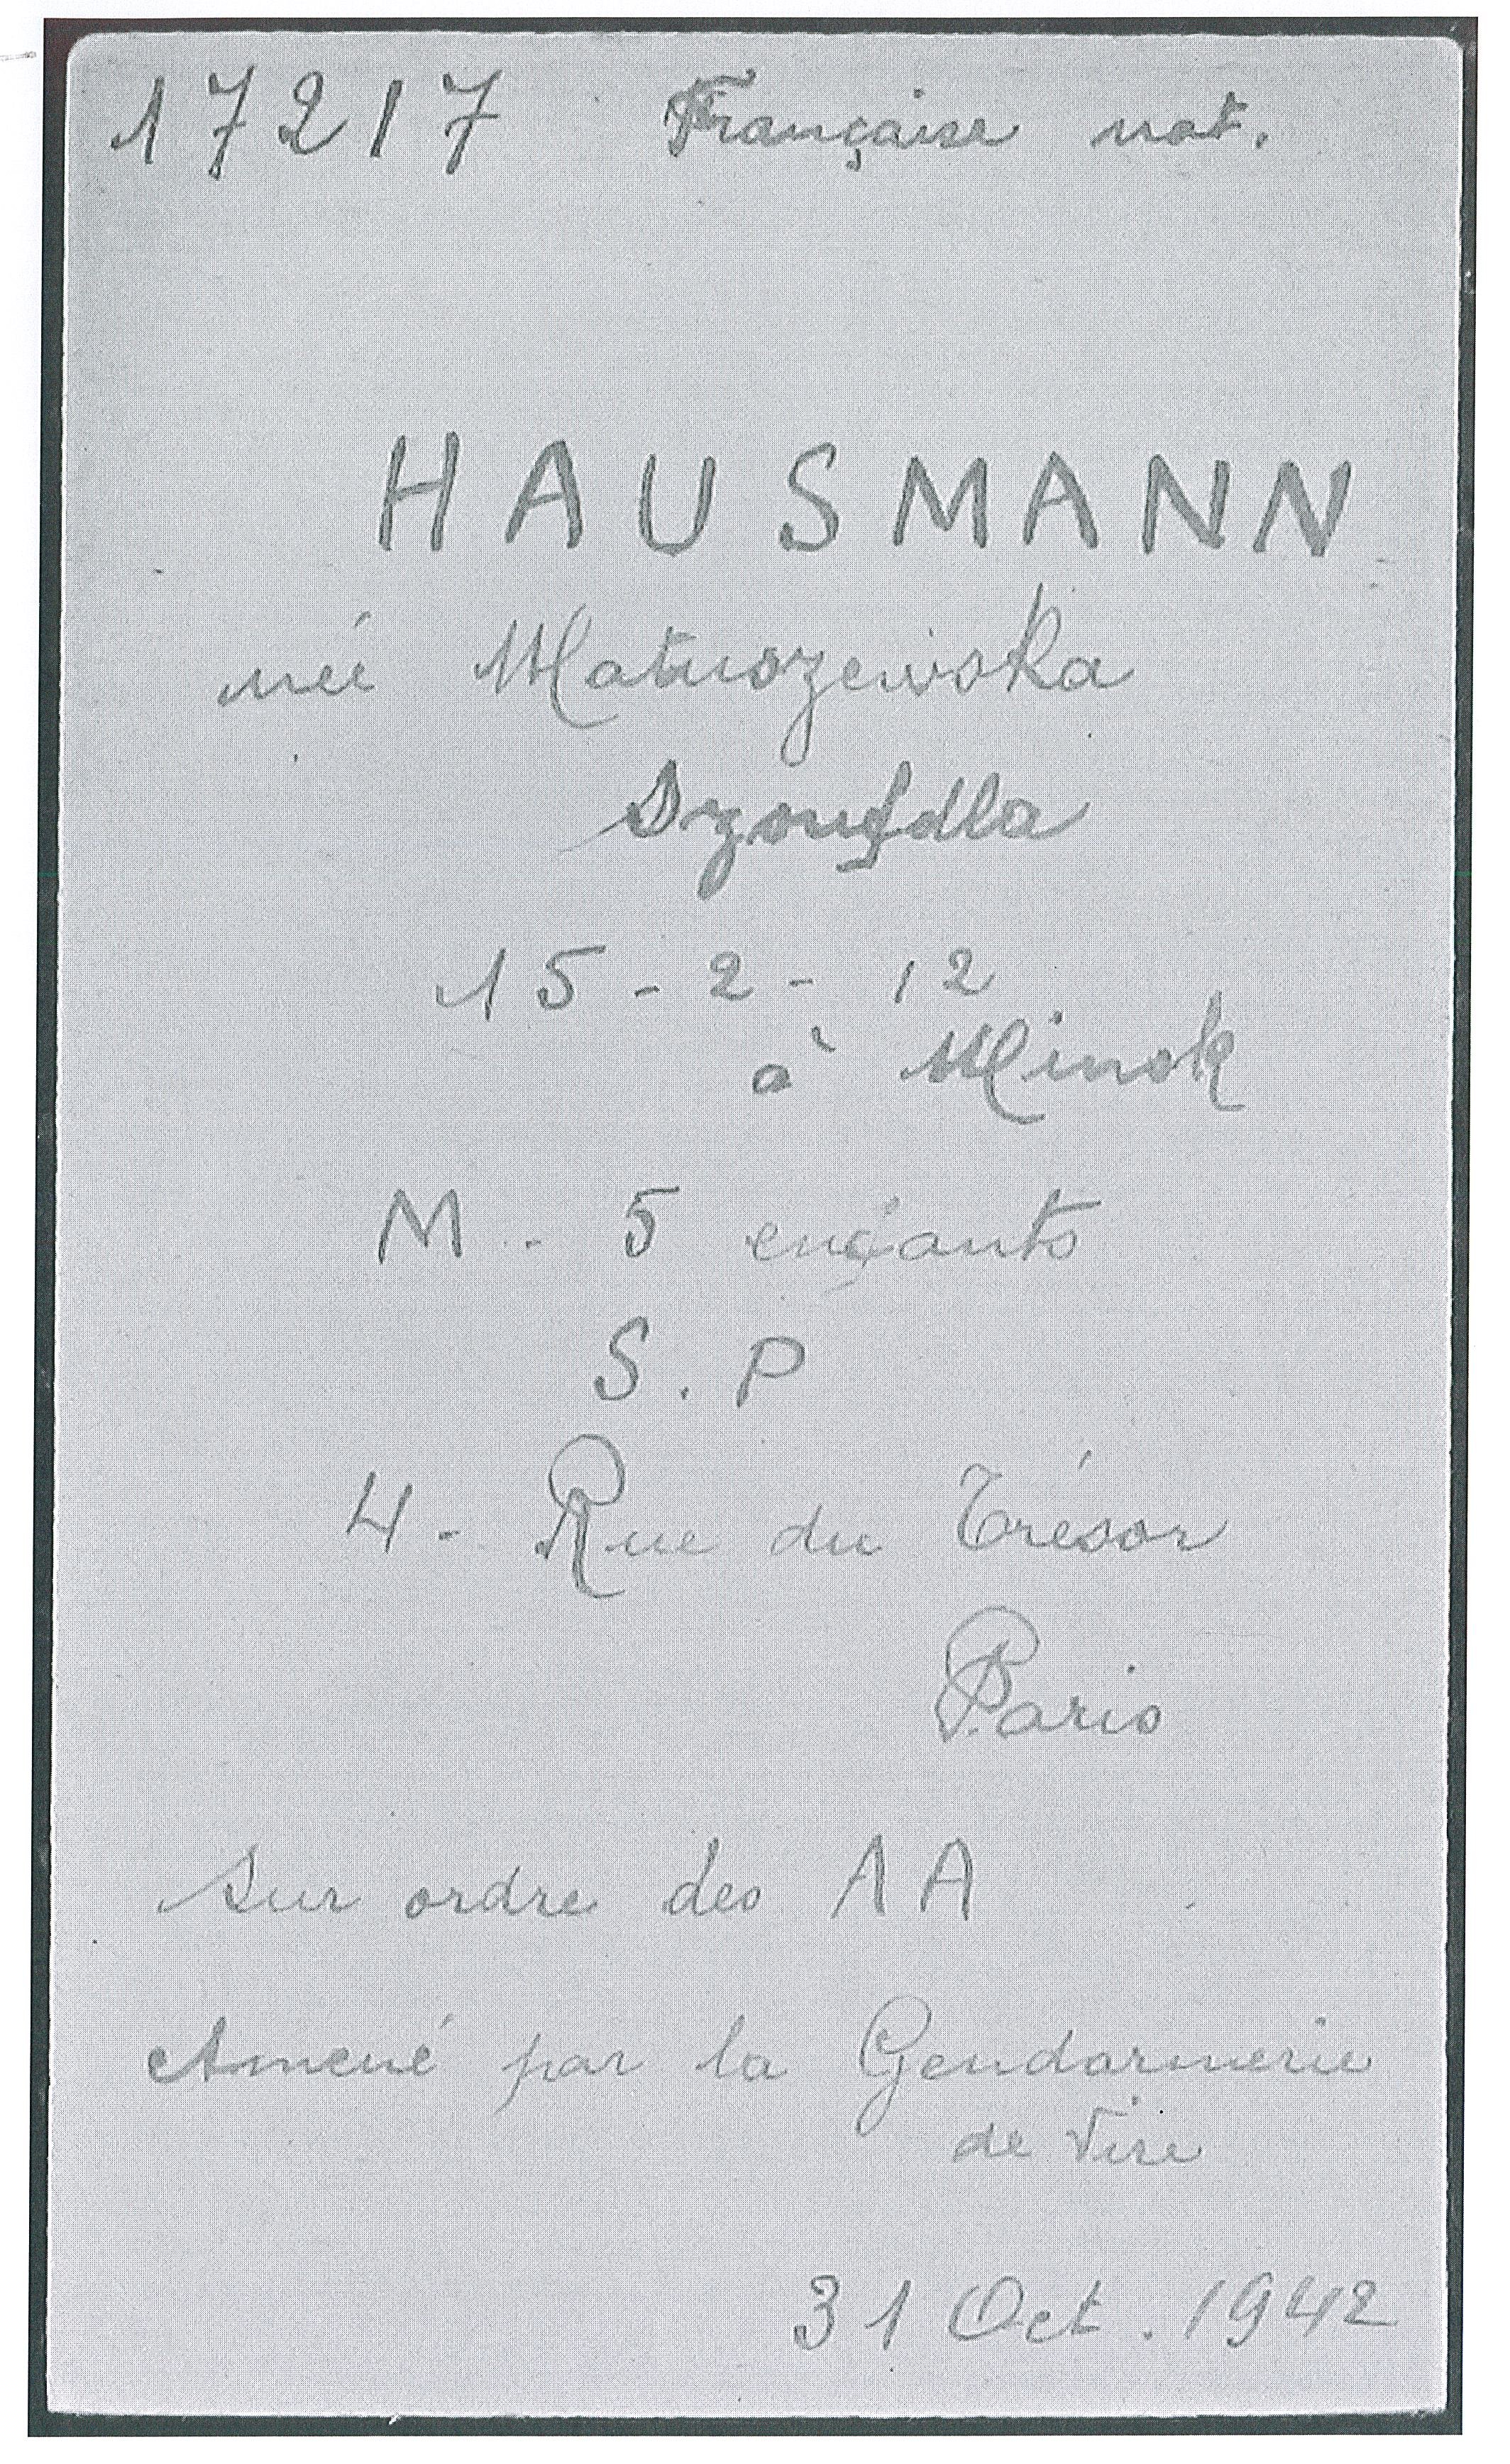 17217 Française nat.
HAUSMANN
née Matuszewska
15-2-12
à Minsk
M - 5 enfants
S.P
4 - Rue du Trésor
Paris
sur ordre des AA
Amené par la Gendarmerie
de Vire
31 Oct. 1942